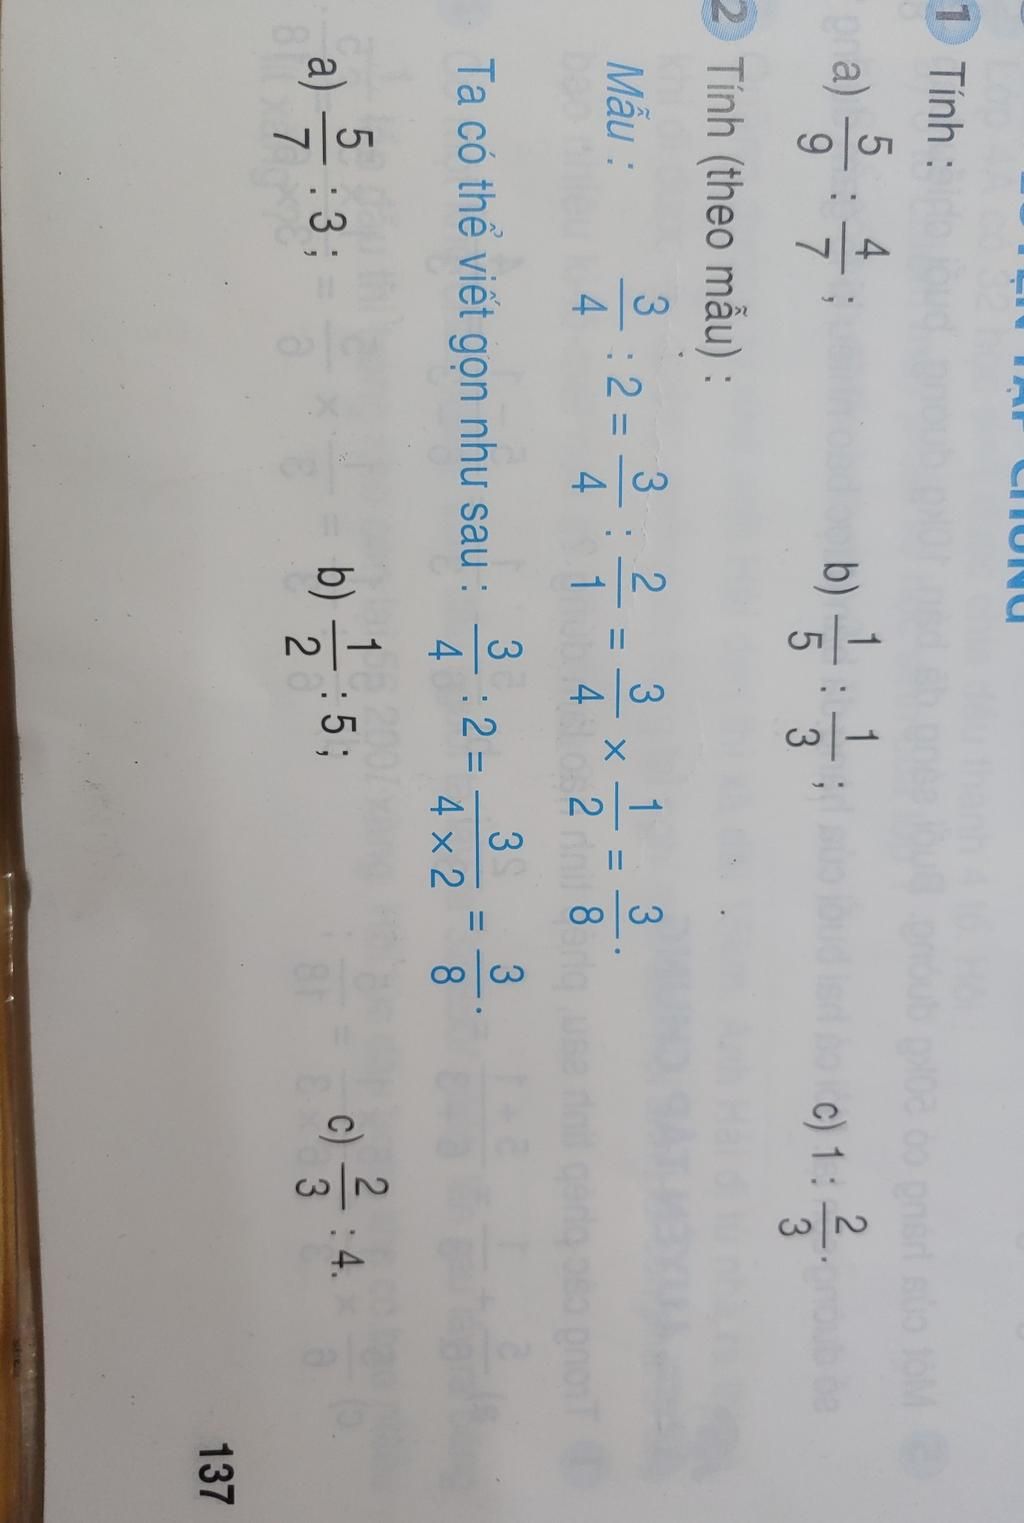 LUYỆN TẬP CHUNG
1 Tính :
a) 5/9 : 4/7 ; b) 1/5 : 1/3 ; c) 1 : 2/3 .
2 Tính (theo mẫu) :
Mẫu : 3/4 : 2 = 3/4 : 2/1 = 3/4 × 1/2 = 3/8 .
Ta có thể viết gọn như sau : 3/4 : 2 = 3/(4 × 2) = 3/8 .
a) 5/7 : 3 ; b) 1/2 : 5 ; c) 2/3 : 4.
137